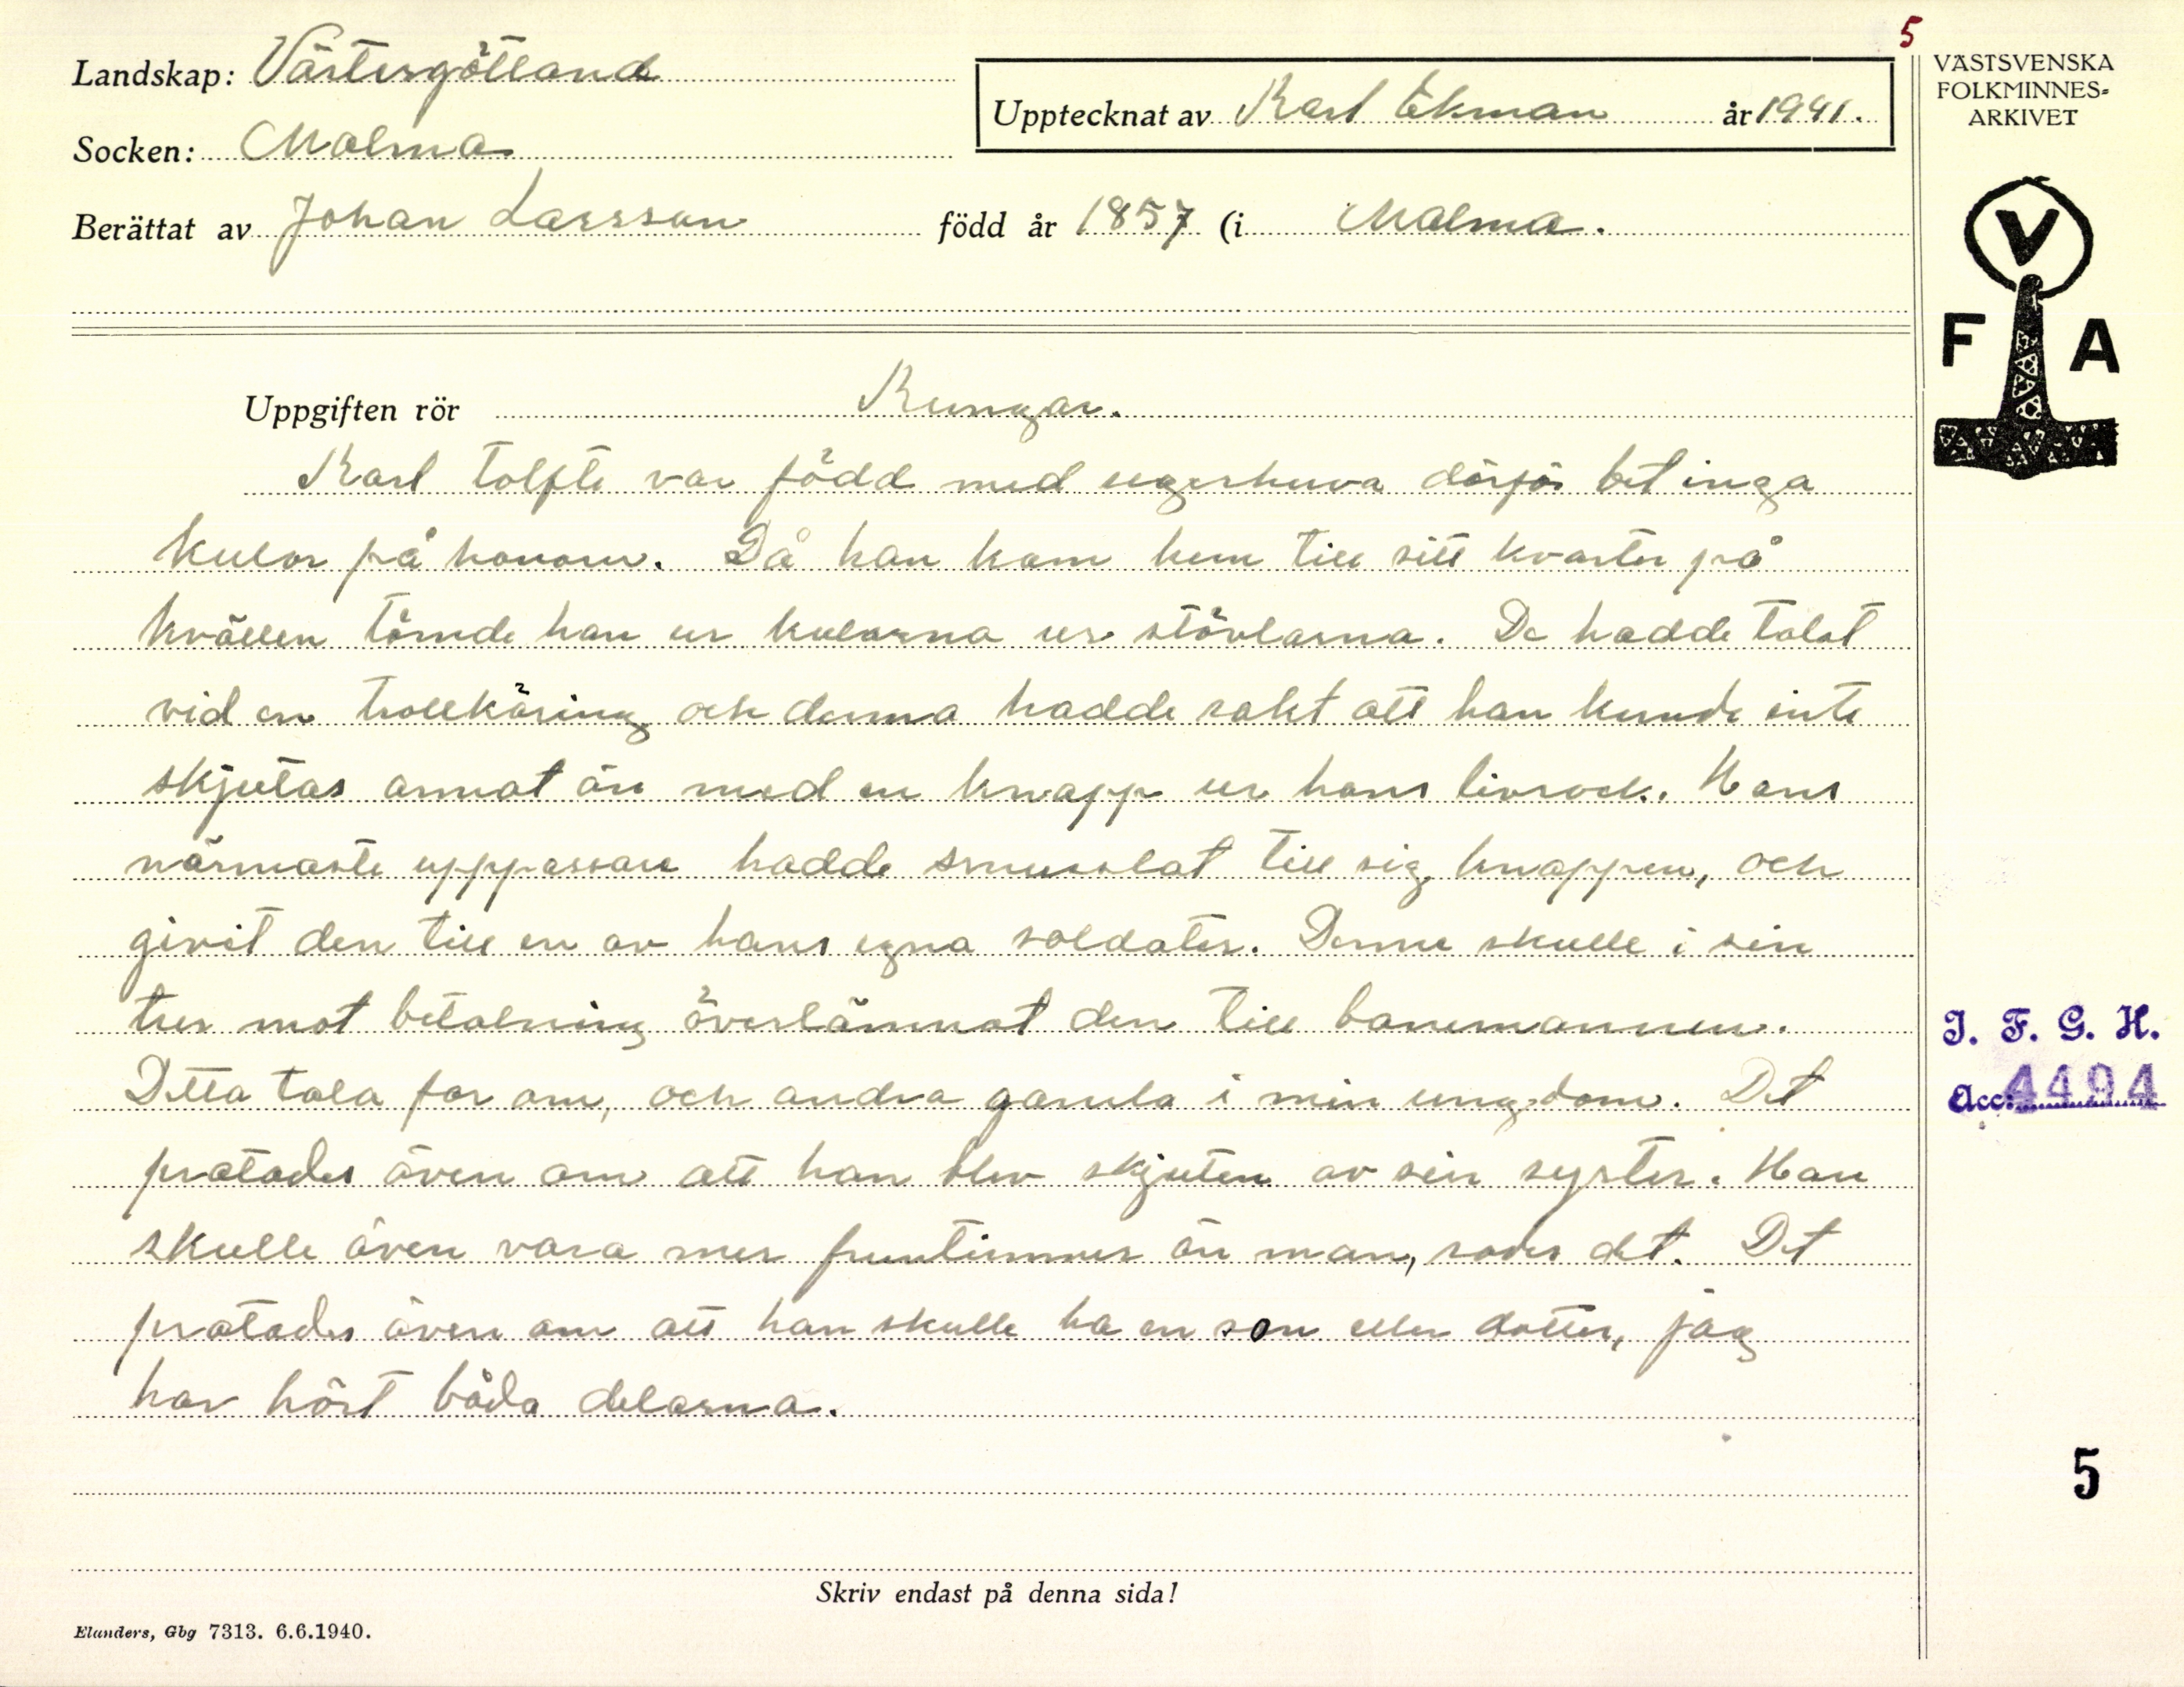 5
Landskap: Västergötland
Upptecknat av Karl Ekman år 1941.
VÄSTSVENSKA
FOLKMINNES-
ARKIVET
Socken: Malma
Berättat av Johan Larsson född år 1857 (i Malma.
V
F A
Uppgiften rör Kungar.
Karl tolfte var född med segerhuva därför bet inga
kulor på honom. Då han kom hem till sitt kvarter på
kvällen tömde han ur kulorna ur stövlarna. De hadde talat
vid en trollkäring och denna hadde sakt att han kunde inte
skjutas annat än med en knapp ur hans livrock. Hans
närmaste uppassare hadde smusslat till sig knappen, och
givit den till en av hans egna soldater. Denne skulle i sin
tur mot betalning överlämnat den till banemannen.
Detta tala far om, och andra gamla i min ungdom. Det
pratades även om att han blev skjuten av sin syster. Han
skulle även vara mer fruntimmer än man, sades det. Det
pratades även om att han skulle ha en son eller dotter, jag
har hört båda delarna.
I. F. G. H.
Acc: 4494
5
Skriv endast på denna sida!
Elanders, Gbg 7313. 6.6.1940.